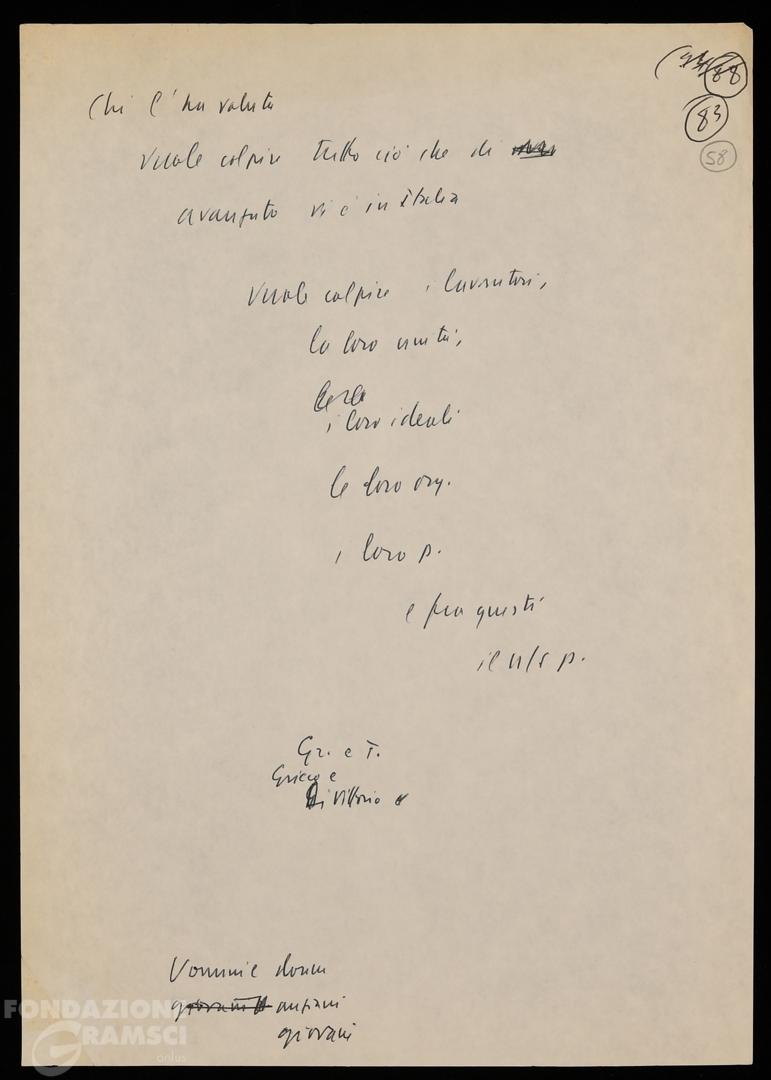 88
83
58
Chi l'ha voluta
vuole colpire tutto ciò che di
avanzato vi è in Italia
Vuole colpire i lavoratori,
la loro unità,
i loro ideali
le loro org.
i loro p.
e fra questi
il n/s p.
Gr. e T.
Grieco e
Di Vittorio
Uomini e donne
giovani anziani
giovani
FONDAZIONE
GRAMSCI
onlus